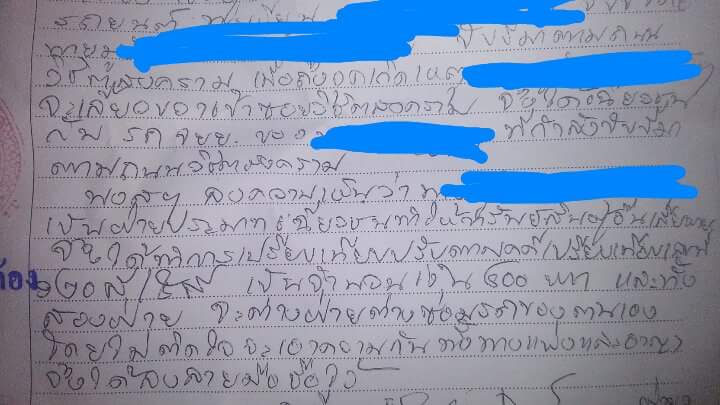 รถยนต์ ทะเบียน
นายม ขับขี่มาตามถนน
วิชิตสงคราม เมื่อถึงจุดเกิดเหตุ
จะเลี้ยวขวาเข้าซอยวิชิตสงคราม จึงได้เฉี่ยวชน
กับ รถ จยย. ของ ที่กำลังขับขี่มา
ตามถนนวิชิตสงคราม
พงสฯ ลงความเห็นว่า
เป็นฝ่ายประมาทเฉี่ยวชนทำให้ทรัพย์สินผู้อื่นเสียหาย
จึงได้ทำการเปรียบเทียบปรับตามคดีเปรียบเทียบเลขที่
เป็นจำนวนเงิน ๔๐๐ บาท และทั้ง
สองฝ่าย จะต่างฝ่ายต่างซ่อมรถของตนเอง
โดยไม่ติดใจจะเอาความกันทั้งทางแพ่งและอาญา
จึงได้ลงลายมือชื่อไว้